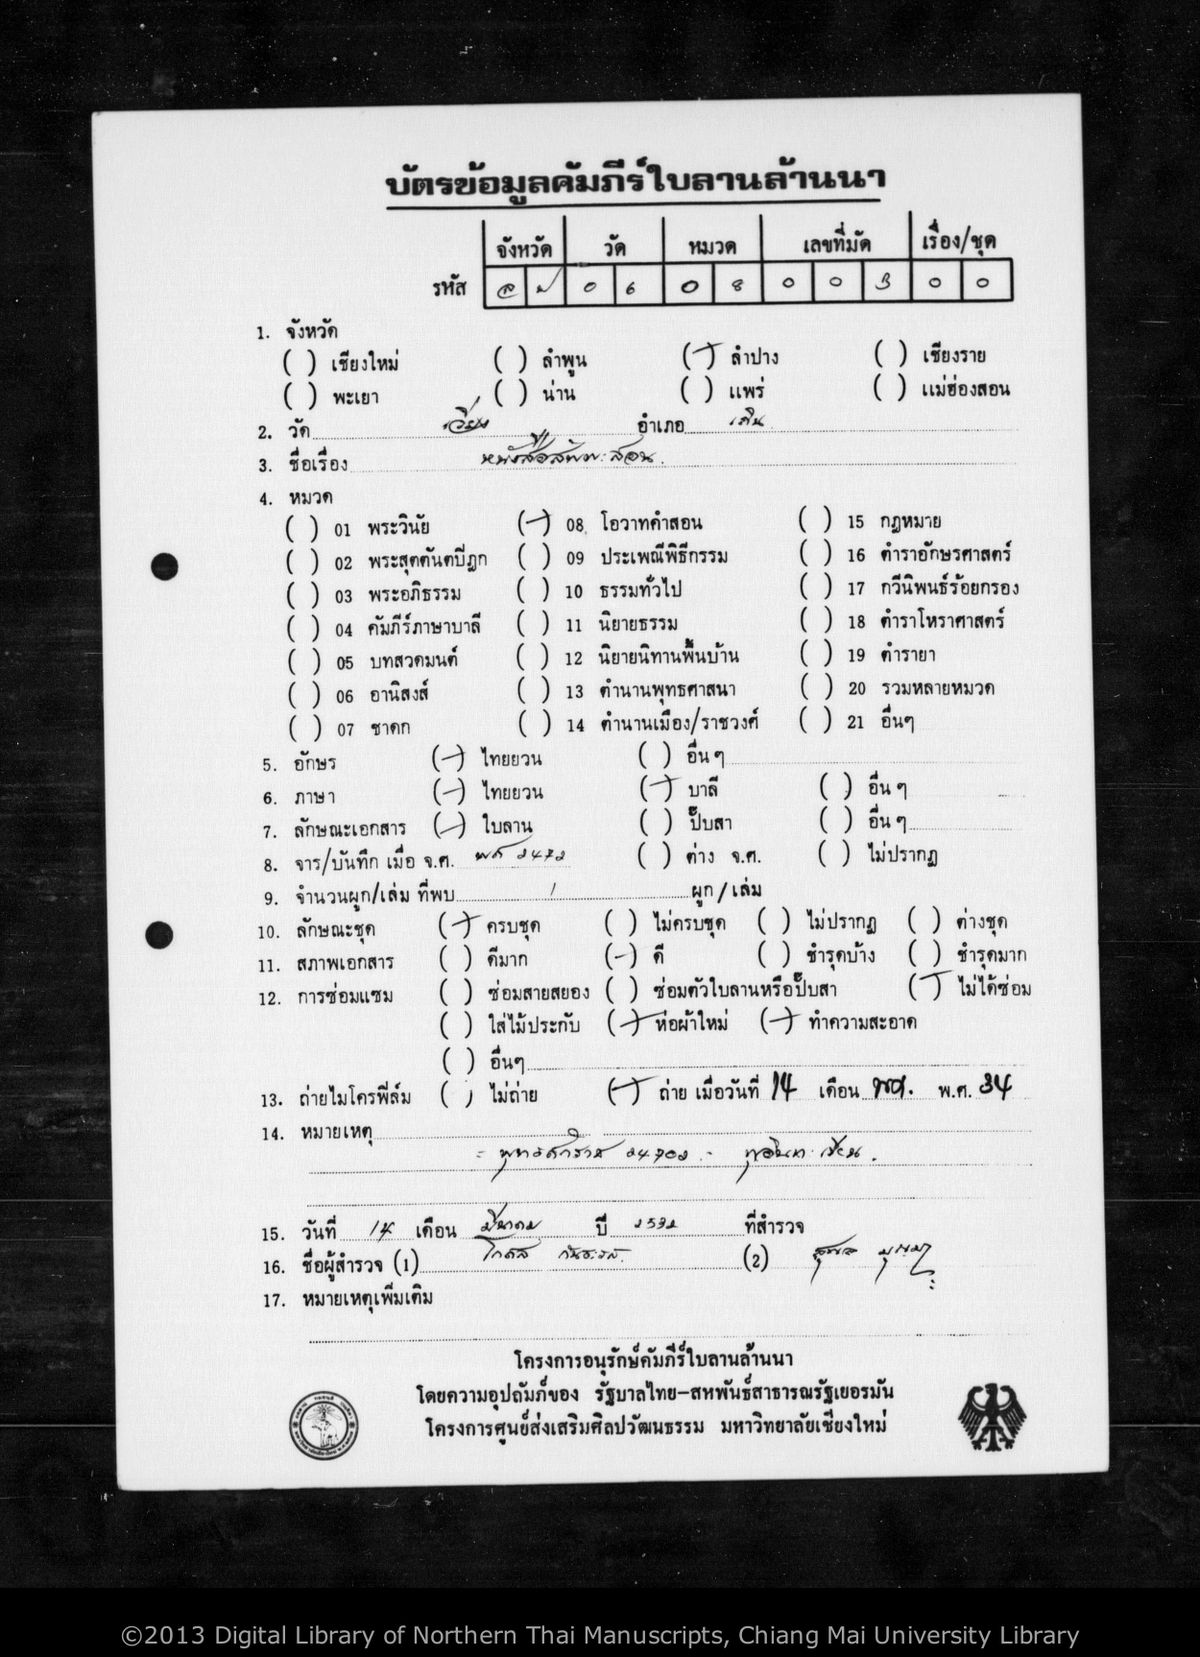 บัตรข้อมูลคัมภีร์ใบลานล้านนา
จังหวัด วัด หมวด เลขที่มัด เรื่อง/ชุด
รหัส ล ป 0 6 0 8 0 0 3 0 0
1. จังหวัด
( ) เชียงใหม่ ( ) ลำพูน (/) ลำปาง ( ) เชียงราย
( ) พะเยา ( ) น่าน ( ) แพร่ ( ) แม่ฮ่องสอน
2. วัด เวียง อำเภอ เถิน
3. ชื่อเรื่อง สอน
4. หมวด
( ) 01 พระวินัย (/) 08 โอวาทคำสอน ( ) 15 กฎหมาย
( ) 02 พระสุตตันตปิฎก ( ) 09 ประเพณีพิธีกรรม ( ) 16 ตำราอักษรศาสตร์
( ) 03 พระอภิธรรม ( ) 10 ธรรมทั่วไป ( ) 17 กวีนิพนธ์ร้อยกรอง
( ) 04 คัมภีร์ภาษาบาลี ( ) 11 นิยายธรรม ( ) 18 ตำราโหราศาสตร์
( ) 05 บทสวดมนต์ ( ) 12 นิยายนิทานพื้นบ้าน ( ) 19 ตำรายา
( ) 06 อานิสงส์ ( ) 13 ตำนานพุทธศาสนา ( ) 20 รวมหลายหมวด
( ) 07 ชาดก ( ) 14 ตำนานเมือง/ราชวงศ์ ( ) 21 อื่นๆ
5. อักษร (/) ไทยยวน ( ) อื่น ๆ
6. ภาษา (/) ไทยยวน (/) บาลี ( ) อื่น ๆ
7. ลักษณะเอกสาร (/) ใบลาน ( ) ปั๊บสา ( ) อื่น ๆ
8. จาร/บันทึก เมื่อ จ.ศ. พศ 2472 ( ) ต่าง จ.ศ. ( ) ไม่ปรากฏ
9. จำนวนผูก/เล่ม ที่พบ 1 ผูก/เล่ม
10. ลักษณะชุด (/) ครบชุด ( ) ไม่ครบชุด ( ) ไม่ปรากฏ ( ) ต่างชุด
11. สภาพเอกสาร ( ) ดีมาก (/) ดี ( ) ชำรุดบ้าง ( ) ชำรุดมาก
12. การซ่อมแซม ( ) ซ่อมสายสยอง ( ) ซ่อมตัวใบลานหรือปั๊บสา (/) ไม่ได้ซ่อม
( ) ใส่ไม้ประกับ (/) ห่อผ้าใหม่ (/) ทำความสะอาด
( ) อื่นๆ
13. ถ่ายไมโครฟิล์ม ( ) ไม่ถ่าย (/) ถ่าย เมื่อวันที่ 14 เดือน พค. พ.ศ. 34
14. หมายเหตุ
15. วันที่ 14 เดือน มีนาคม ปี 2532 ที่สำรวจ
16. ชื่อผู้สำรวจ (1) (2)
17. หมายเหตุเพิ่มเติม
โครงการอนุรักษ์คัมภีร์ใบลานล้านนา
โดยความอุปถัมภ์ของ รัฐบาลไทย-สหพันธ์สาธารณรัฐเยอรมัน
โครงการศูนย์ส่งเสริมศิลปวัฒนธรรม มหาวิทยาลัยเชียงใหม่
©2013 Digital Library of Northern Thai Manuscripts, Chiang Mai University Library